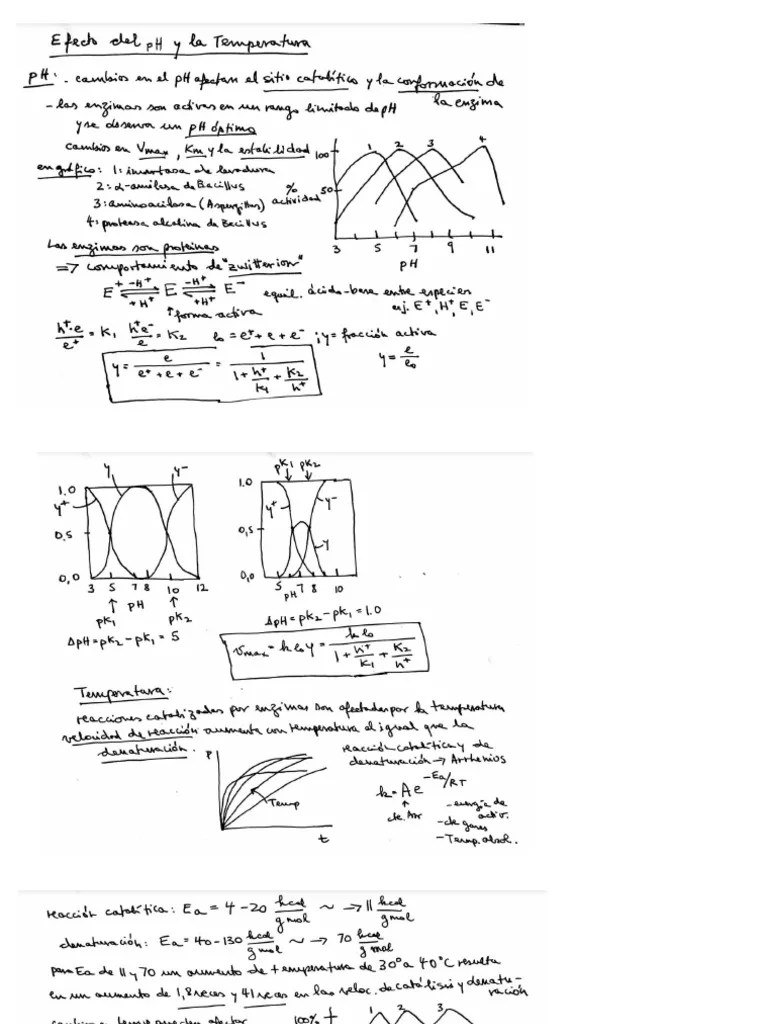 Efecto del pH y la Temperatura
pH: . cambios en el pH afectan el sitio catalítico y la conformación de
la enzima
- las enzimas son activas en un rango limitado de pH
y se observa un pH óptimo
cambios en Vmax, Km y la estabilidad
en gráfico: 1: invertasa de levadura
2: α-amilasa de Bacillus
3: aminoacilasa (Aspergillus)
4: proteasa alcalina de Bacillus
% actividad
100
50
1 2 3 4
3 5 7 9 11
pH
Las enzimas son proteínas
=> comportamiento de "zwitterion"
E+ -H+ +H+ E -H+ +H+ E-
↑ forma activa
equil. ácido-base entre especies
ej. E+, H+, E, E-
h+·e/e+ = K1 h+e-/e = K2 e0 = e+ + e + e- ; y = fracción activa
y = e/(e+ + e + e-) = 1/(1 + h+/K1 + K2/h+)
y = e/e0
y y-
1.0
y+
0.5
0,0
3 5 7 8 10 12
↑ pH ↑
pK1 pK2
ΔpH = pK2 - pK1 = 5
pK1 pK2
1.0
y+ y-
0,5
y
0,0
5 7 8 10
pH
ΔpH = pK2 - pK1 = 1.0
Vmax = k e0 y = k e0/(1 + h+/K1 + K2/h+)
Temperatura:
reacciones catalizadas por enzimas son afectadas por la temperatura
velocidad de reacción aumenta con temperatura al igual que la
denaturación.
P
Temp
t
reacción catalítica y de
denaturación → Arrhenius
k = Ae -Ea/RT
↑
cte. Arr
- energía de
activ.
- cte gases
- Temp. absol.
reacción catalítica: Ea = 4 - 20 kcal/gmol ~ → 11 kcal/gmol
denaturación: Ea = 40 - 130 kcal/gmol ~ → 70 kcal/gmol
para Ea de 11 y 70 un aumento de temperatura de 30° a 40°C resulta
en un aumento de 1,8 veces y 41 veces en las veloc. de catálisis y denatu-
ración
100%
1 2 3